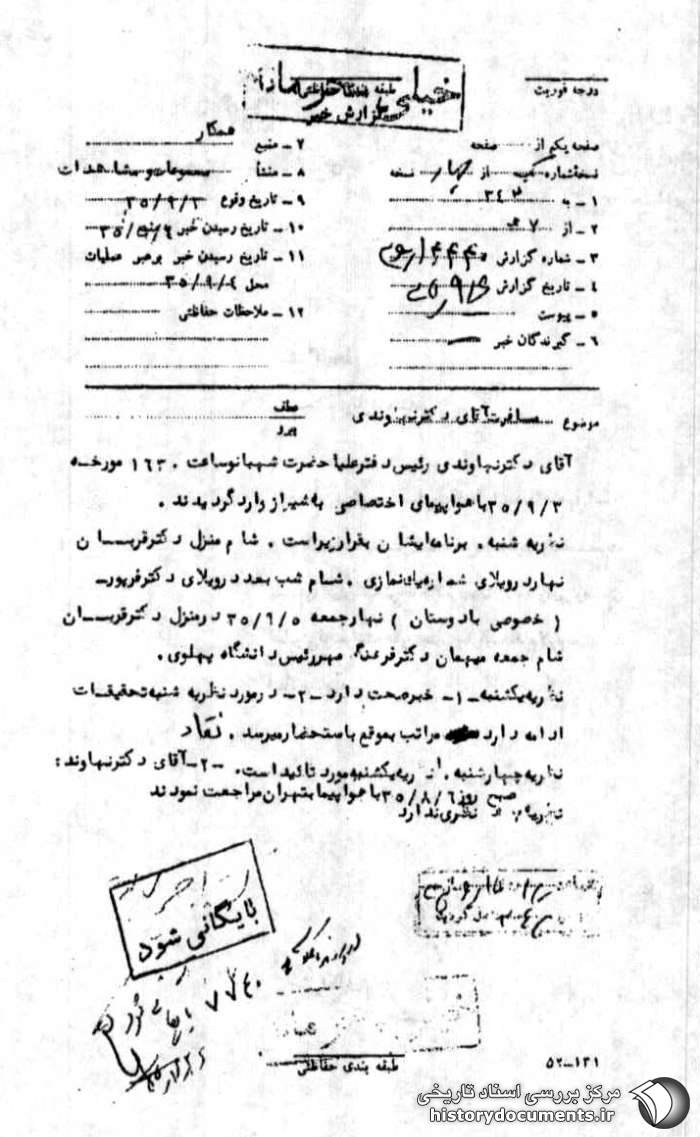 خیلی محرمانه
طبقه بندی حفاظتی
گزارش خبر
درجه فوریت
صفحه یکم از صفحه
نسخه شماره یک از چهار نسخه
۱ ـ به ۳٤۲
۲ ـ از ۷ ه
۳ ـ شماره گزارش
٤ ـ تاریخ گزارش
۵ ـ پیوست
۶ ـ گیرندگان خبر
۷ ـ منبع همکار
۸ ـ منشأ مسموعات و مشاهدات
۹ ـ تاریخ وقوع ۳۵/۹/۳
۱۰ ـ تاریخ رسیدن خبر بمنبع
۱۱ ـ تاریخ رسیدن خبر برهبر عملیات
محل ۳۵/۹/٤
۱۲ ـ ملاحظات حفاظتی
موضوع مسافرت آقای دکتر نهاوندی
عطف
پیرو
آقای دکترنهاوندی رئیس دفترعلیا حضرت شهبانوساعت ۱۶۳۰ مورخه
۳۵/۹/۳ باهواپیمای اختصاصی به شیراز وارد گردیدند .
نظریه شنبه . برنامه ایشان بقرارزیراست . شام منزل دکترقربان
نهارد رویلای شماره
شام شب بعد د رویلای دکترفرپور ـ
( خصوصی بادوستان ) نهارجمعه ۳۵/۹/۵ د رمنزل دکترقربان
شام جمعه میهمان دکترفرهنگ مهررئیس دانشگاه پهلوی .
نظریه یکشنبه ـ ۱ ـ خبرصحت دارد ـ ۲ ـ درمورد نظریه شنبه تحقیقات
ادامه دارد مراتب بموقع باستحضارمیرسد . نقاد
نظریه چهارشنبه . نظریه یکشنبه مورد تائیداست . ـ ۲ ـ آقای دکترنهاوند :
صبح روز ۳۵/۸/۶ باهواپیما بتهران مراجعت نمودند
نظری ندارد
بایگانی شود
۷۷٤۰
طبقه بندی حفاظتی
۵۲ ـ ۱۳۱
مرکز بررسی اسناد تاریخی
historydocuments.ir